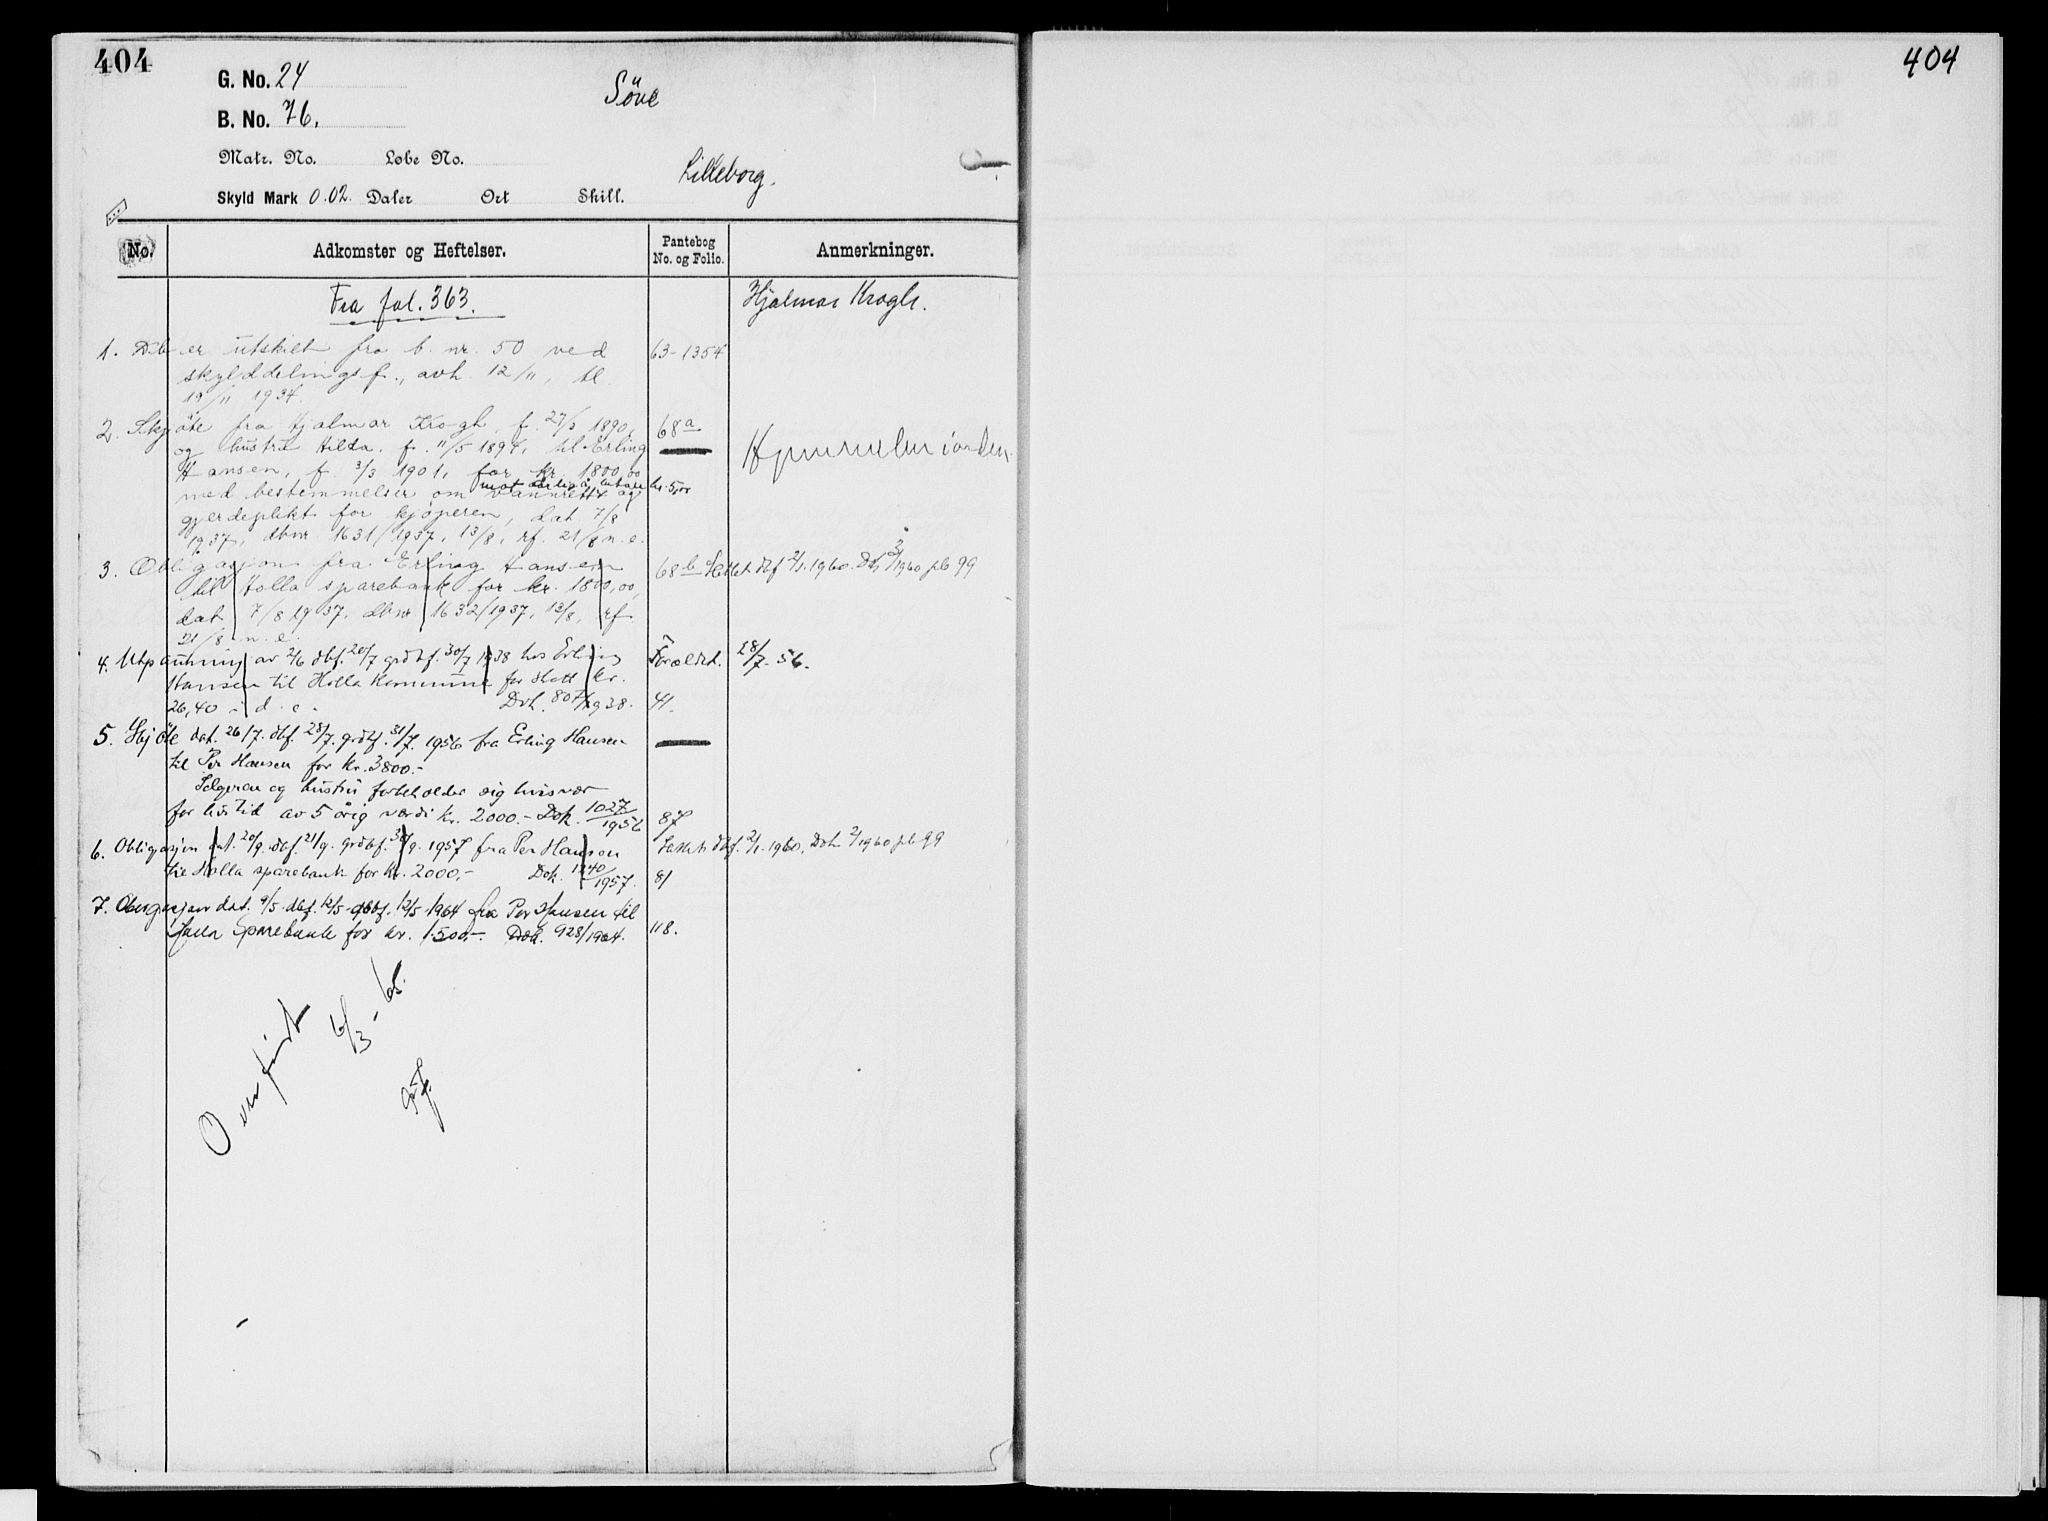 404
G. No. 24
Söve
B. No. 76.
Matr. No. Løbe No.
Lilleborg.
Skyld Mark 0.02. Daler Ort Skill.
No. Adkomster og Heftelser. Pantebog No. og Folio. Anmerkninger.
Fra fol. 363. Hjalmar Krogh.
1. Dette er utskilt fra b. nr. 50 ved 63-1354
skylddelingsf., avh. 12/11, tl.
19/11 1934.
2. Skjöte fra Hjalmar Krogh, f. 27/3 1890, 68a
og hustru Hilda, f. 11/5 1894, til Erling
Hansen, f. 3/3 1901, for kr. 1800,00 Hjemmelsmannen
mot årlig å betale kr. 5,00
med bestemmelser om vannrett og
gjerdeplikt for kjöperen, dat. 7/8
1937, dbnr 1631/1937, 13/8, rf. 21/8 n. e.
3. Obligasjon fra Erling Hansen 68b Slettet dbf 2/1. 1960. Dok 3/1960 pb 99
til Holla sparebank for kr. 1800,00,
dat. 7/8 1937, dbnr 1632/1937, 13/8, rf
21/8 n. e.
4. Utpantning av 2/6 dbf. 20/7 grdbf. 30/7 1938 hos Erling Foreldet. 28/7-56.
Hansen til Holla Kommune for skatt kr.
26,40 - d. e. - Dok. 807/1938. 41.
5. Skjöte dat. 26/7. dbf. 28/7. grdbf. 31/7. 1956 fra Erling Hansen
til Per Hansen for kr. 3800.-
Selgeren og hustru forbeholder sig husvær
for livstid av 5 årig verdi kr. 2000.- Dok. 1027/1956 87
6. Obligasjon dat. 20/9. dbf. 21/9. grdbf. 30/9. 1957 fra Per Hansen Slettet dbf. 2/1. 1960, Dok 2/1960 pb 99
til Holla sparebank for kr. 2000,- Dok. 1240/1957. 81
7. Obligasjon dat. 9/5. dbf. 12/5 gdbf. 12/5-1964 fra Per Hansen til
Holla Sparebank for kr. 1.500,-. Dok. 928/1964. 118.
Overfört 6/3-65.
404